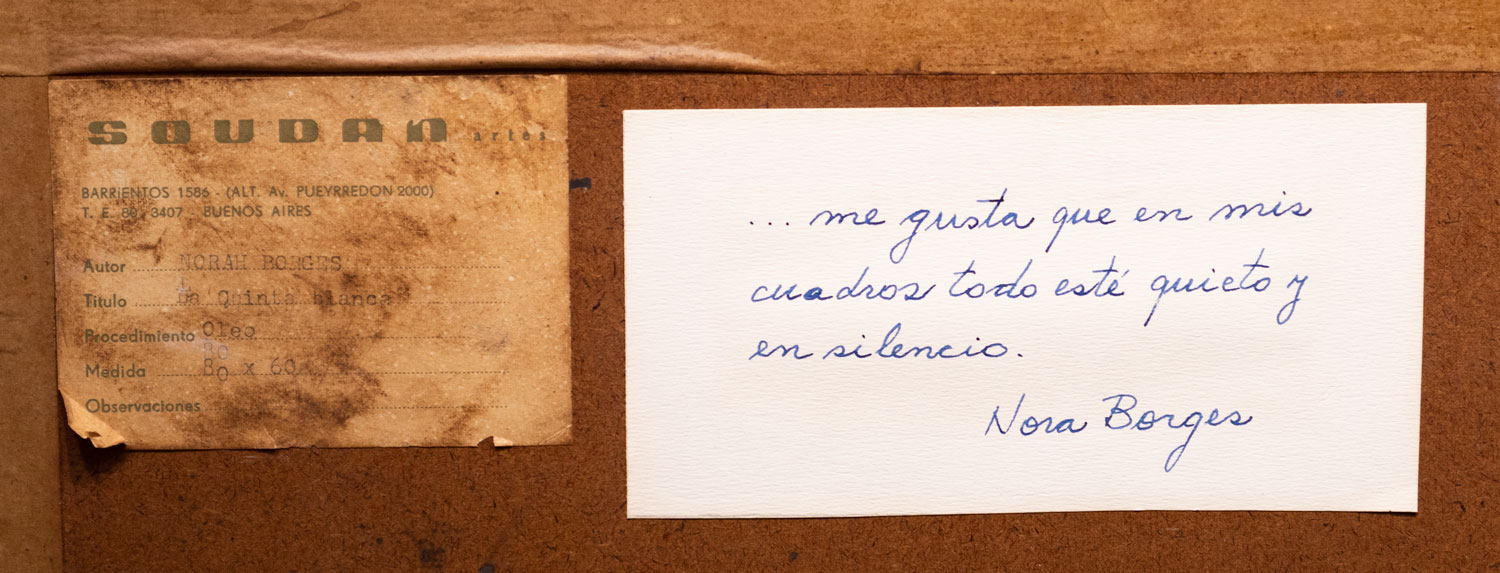 SOUDAN artes
BARRIENTOS 1586 - (ALT. Av. PUEYRREDON 2000)
T. E. 80 3407 - BUENOS AIRES
Autor NORAH BORGES
Titulo La Quinta blanca
Procedimiento Oleo
80
Medida 80 x 60
Observaciones
... me gusta que en mis
cuadros todo esté quieto y
en silencio.
Nora Borges